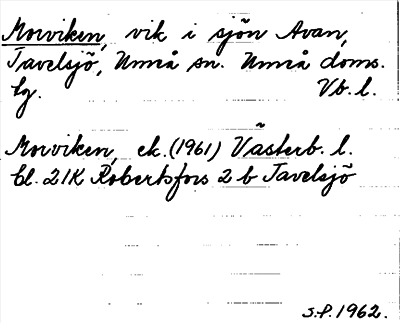 Morviken, vik i sjön Avan,
Tavelsjö, Umeå sn. Umeå doms.
lg. Vb. l.
Morviken, ek. (1961) Västerb. l.
bl. 21K Robertsfors 2 b Tavelsjö
S.P. 1962.